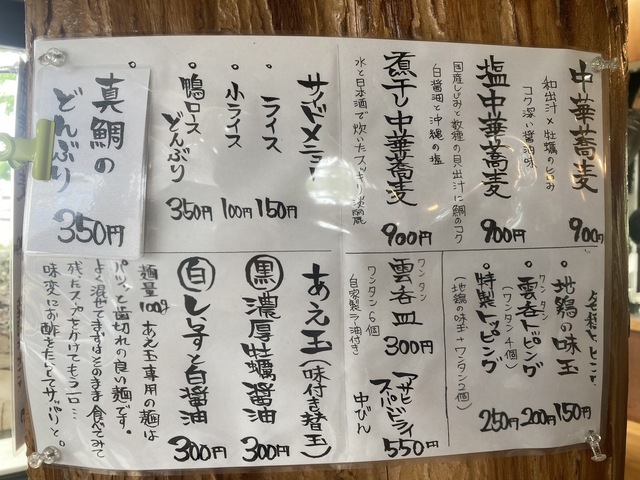 中華蕎麦
和出汁×牡蠣の旨み
コク深い醤油味
900円
塩中華蕎麦
国産しじみと数種の貝出汁に鯛のコク
白醤油と沖縄の塩
900円
煮干し中華蕎麦
水と日本酒で炊いたスッキリ淡麗
900円
サイドメニュー
・ライス
150円
・小ライス
100円
・鴨ロス
どんぶり
350円
・真鯛の
どんぶり
350円
・地鶏の味玉
150円
・雲呑トッピング
ワンタン
(ワンタン4個)
200円
・特製トッピング
(地鶏の味玉+ワンタン2個)
250円
雲呑皿
ワンタン
ワンタン6個
自家製ラー油付き
300円
アサヒ
スーパードライ
中びん
550円
あえ玉(味付き替玉)
黒 濃厚牡蠣醤油
300円
白 しらすと白醤油
300円
麺量100g あえ玉専用の麺は
パツっと歯切れの良い麺です。
よく混ぜてまずはそのまま食べてみて
残たスープをかけてもう一口…
味変にお酢をたらしてサッパリと。